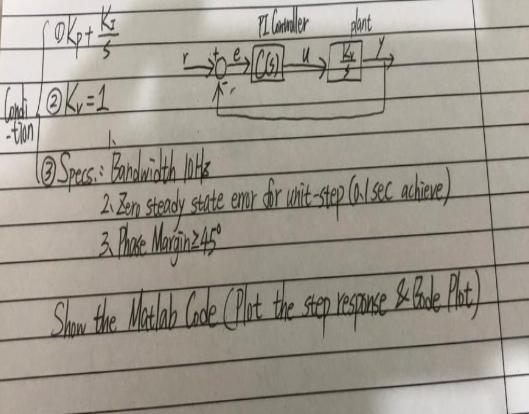 ① Kp + KI/s
PI Controller plant
r + e C(s) u Kv/s y
-
Condi-tion
② Kv = 1
③ Specs.: 1. Bandwidth 10Hz
2. Zero steady state error for unit-step (0.1 sec achieve)
3. Phase Margin ≥ 45°
Show the Matlab Code (Plot the step response & Bode Plot)